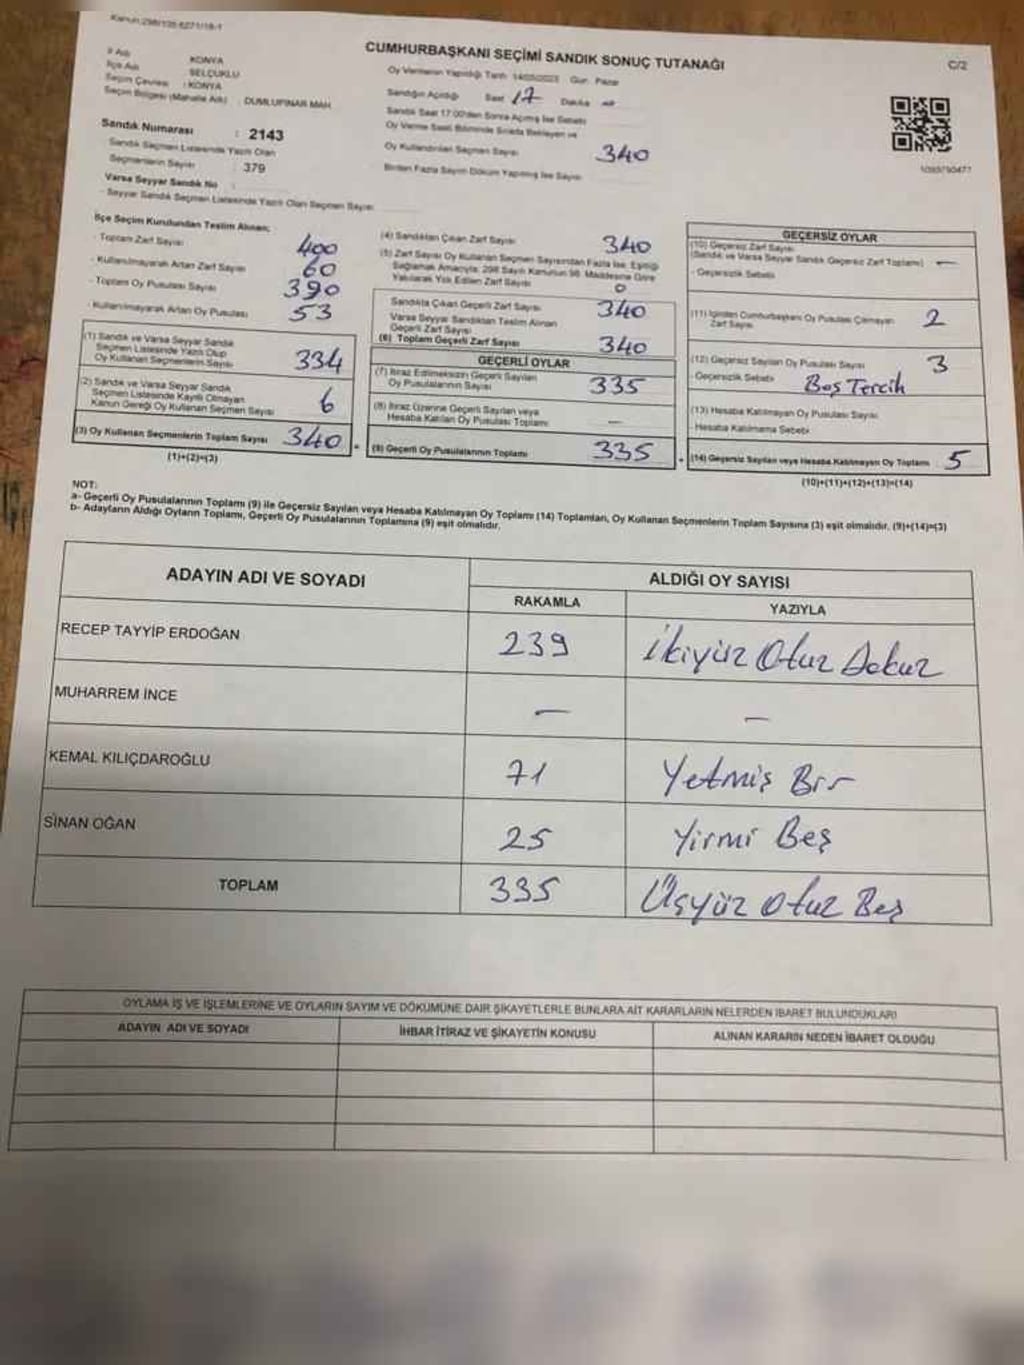 Kanun:298/105-6271/18-1
CUMHURBAŞKANI SEÇİMİ SANDIK SONUÇ TUTANAĞI
C/2
İl Adı : KONYA
İlçe Adı : SELÇUKLU
Seçim Çevresi : KONYA
Seçim Bölgesi (Mahalle Adı) : DUMLUPINAR MAH.
Sandık Numarası : 2143
Sandık Seçmen Listesinde Yazılı Olan
Seçmenlerin Sayısı : 379
Varsa Seyyar Sandık No :
- Seyyar Sandık Seçmen Listesinde Yazılı Olan Seçmen Sayısı:
Oy Vermenin Yapıldığı Tarih 14/05/2023 Gün Pazar
Sandığın Açıldığı Saat 17 Dakika
Sandık Saat 17:00'den Sonra Açılmış İse Sebebi
Oy Verme Saati Bitiminde Sırada Bekleyen ve
Oy Kullandırılan Seçmen Sayısı 340
Birden Fazla Sayım Döküm Yapılmış İse Sayısı
İlçe Seçim Kurulundan Teslim Alınan;
- Toplam Zarf Sayısı 400
- Kullanılmayarak Artan Zarf Sayısı 60
- Toplam Oy Pusulası Sayısı 390
- Kullanılmayarak Artan Oy Pusulası 53
(1) Sandık ve Varsa Seyyar Sandık
Seçmen Listesinde Yazılı Olup
Oy Kullanan Seçmenlerin Sayısı 334
(2) Sandık ve Varsa Seyyar Sandık
Seçmen Listesinde Kayıtlı Olmayan
Kanun Gereği Oy Kullanan Seçmen Sayısı 6
(3) Oy Kullanan Seçmenlerin Toplam Sayısı 340
(1)+(2)=(3)
(4) Sandıktan Çıkan Zarf Sayısı 340
(5) Zarf Sayısı Oy Kullanan Seçmen Sayısından Fazla İse, Eşitliği
Sağlamak Amacıyla, 298 Sayılı Kanunun 98. Maddesine Göre
Yakılarak Yok Edilen Zarf Sayısı 0
Sandıkta Çıkan Geçerli Zarf Sayısı 340
Varsa Seyyar Sandıktan Teslim Alınan
Geçerli Zarf Sayısı
(6) Toplam Geçerli Zarf Sayısı 340
GEÇERLİ OYLAR
(7) İtiraz Edilmeksizin Geçerli Sayılan
Oy Pusulalarının Sayısı 335
(8) İtiraz Üzerine Geçerli Sayılan veya
Hesaba Katılan Oy Pusulası Toplamı —
(9) Geçerli Oy Pusulalarının Toplamı 335
GEÇERSİZ OYLAR
(10) Geçersiz Zarf Sayısı
(Sandık ve Varsa Seyyar Sandık Geçersiz Zarf Toplamı) —
- Geçersizlik Sebebi
(11) İçinden Cumhurbaşkanı Oy Pusulası Çıkmayan
Zarf Sayısı 2
(12) Geçersiz Sayılan Oy Pusulası Sayısı 3
- Geçersizlik Sebebi Boş Tercih
(13) Hesaba Katılmayan Oy Pusulası Sayısı
- Hesaba Katılmama Sebebi
(14) Geçersiz Sayılan veya Hesaba Katılmayan Oy Toplamı 5
(10)+(11)+(12)+(13)=(14)
NOT:
a- Geçerli Oy Pusulalarının Toplamı (9) ile Geçersiz Sayılan veya Hesaba Katılmayan Oy Toplamı (14) Toplamları, Oy Kullanan Seçmenlerin Toplam Sayısına (3) eşit olmalıdır. (9)+(14)=(3)
b- Adayların Aldığı Oyların Toplamı, Geçerli Oy Pusulalarının Toplamına (9) eşit olmalıdır.
ADAYIN ADI VE SOYADI
ALDIĞI OY SAYISI
RAKAMLA YAZIYLA
RECEP TAYYİP ERDOĞAN 239 İkiyüz Otuz Dokuz
MUHARREM İNCE — —
KEMAL KILIÇDAROĞLU 71 Yetmiş Bir
SİNAN OĞAN 25 Yirmi Beş
TOPLAM 335 Üçyüz Otuz Beş
OYLAMA İŞ VE İŞLEMLERİNE VE OYLARIN SAYIM VE DÖKÜMÜNE DAİR ŞİKAYETLERLE BUNLARA AİT KARARLARIN NELERDEN İBARET BULUNDUKLARI
ADAYIN ADI VE SOYADI İHBAR İTİRAZ VE ŞİKAYETİN KONUSU ALINAN KARARIN NEDEN İBARET OLDUĞU